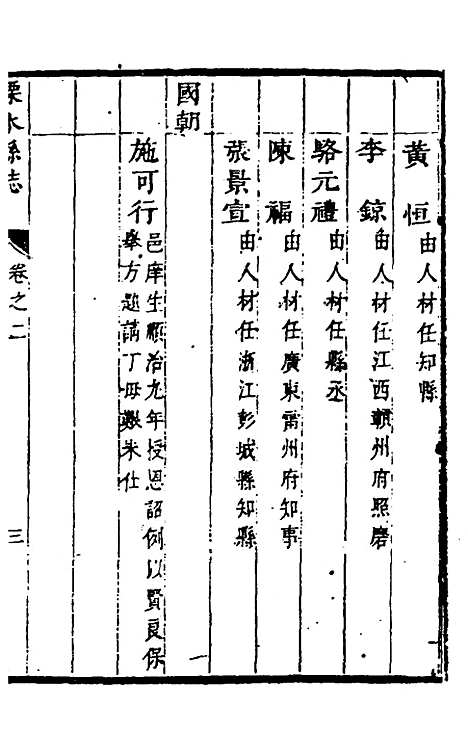 黃恒由人材任知縣
李鯨由人材任江西贛州府照磨
駱元禮由人材任縣丞
陳福由人材任廣東雷州府知事
張景宣由人材任浙江彭城縣知縣
國朝
施可行邑庠生順治九年授恩詔例以賢良保
舉方題請丁母艱未仕
溧水縣志
卷之二
三